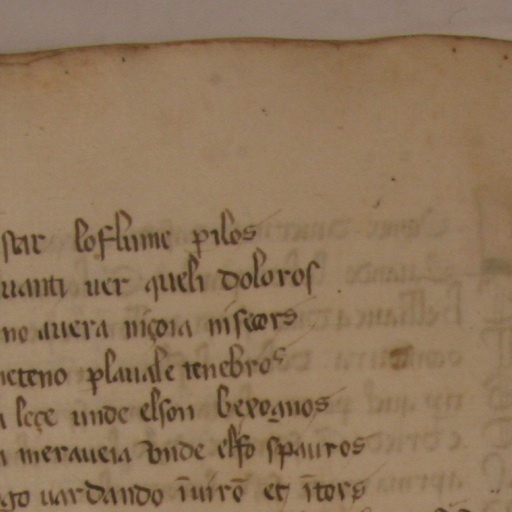 star lo flume pilos
uanti uer queli doloros
no auera niçoia nisecors
meteno plauale tenebros
leçe unde elson bexognos
meraueia donde elso spauros
go uardando ĩuirõ et ĩtors